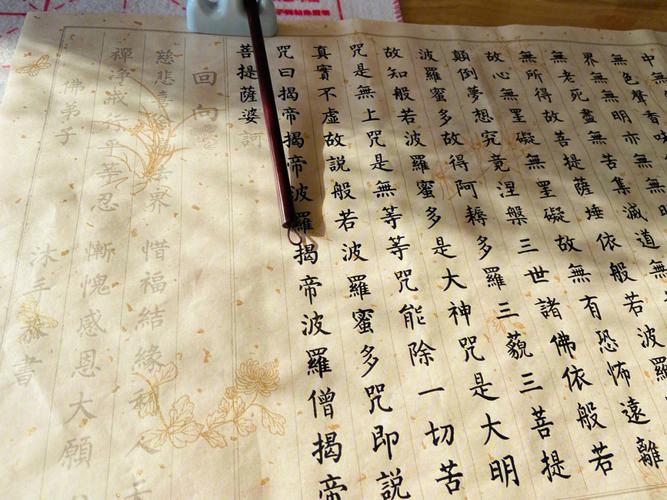 中
無色聲香味
界無無明亦無無明
無老死盡無苦集滅道無
無所得故菩提薩埵依般若波羅
故心無罣礙無罣礙故無有恐怖遠離
顛倒夢想究竟涅槃三世諸佛依般若
波羅蜜多故得阿耨多羅三藐三菩提
故知般若波羅蜜多是大神咒是大明
咒是無上咒是無等等咒能除一切苦
真實不虛故說般若波羅蜜多咒即說
咒曰揭帝揭帝波羅揭帝波羅僧揭帝
菩提薩婆訶
回向
慈悲喜捨遍法界 惜福結緣利人天
禪淨戒行平等忍 慚愧感恩大願
佛弟子 沐手恭書